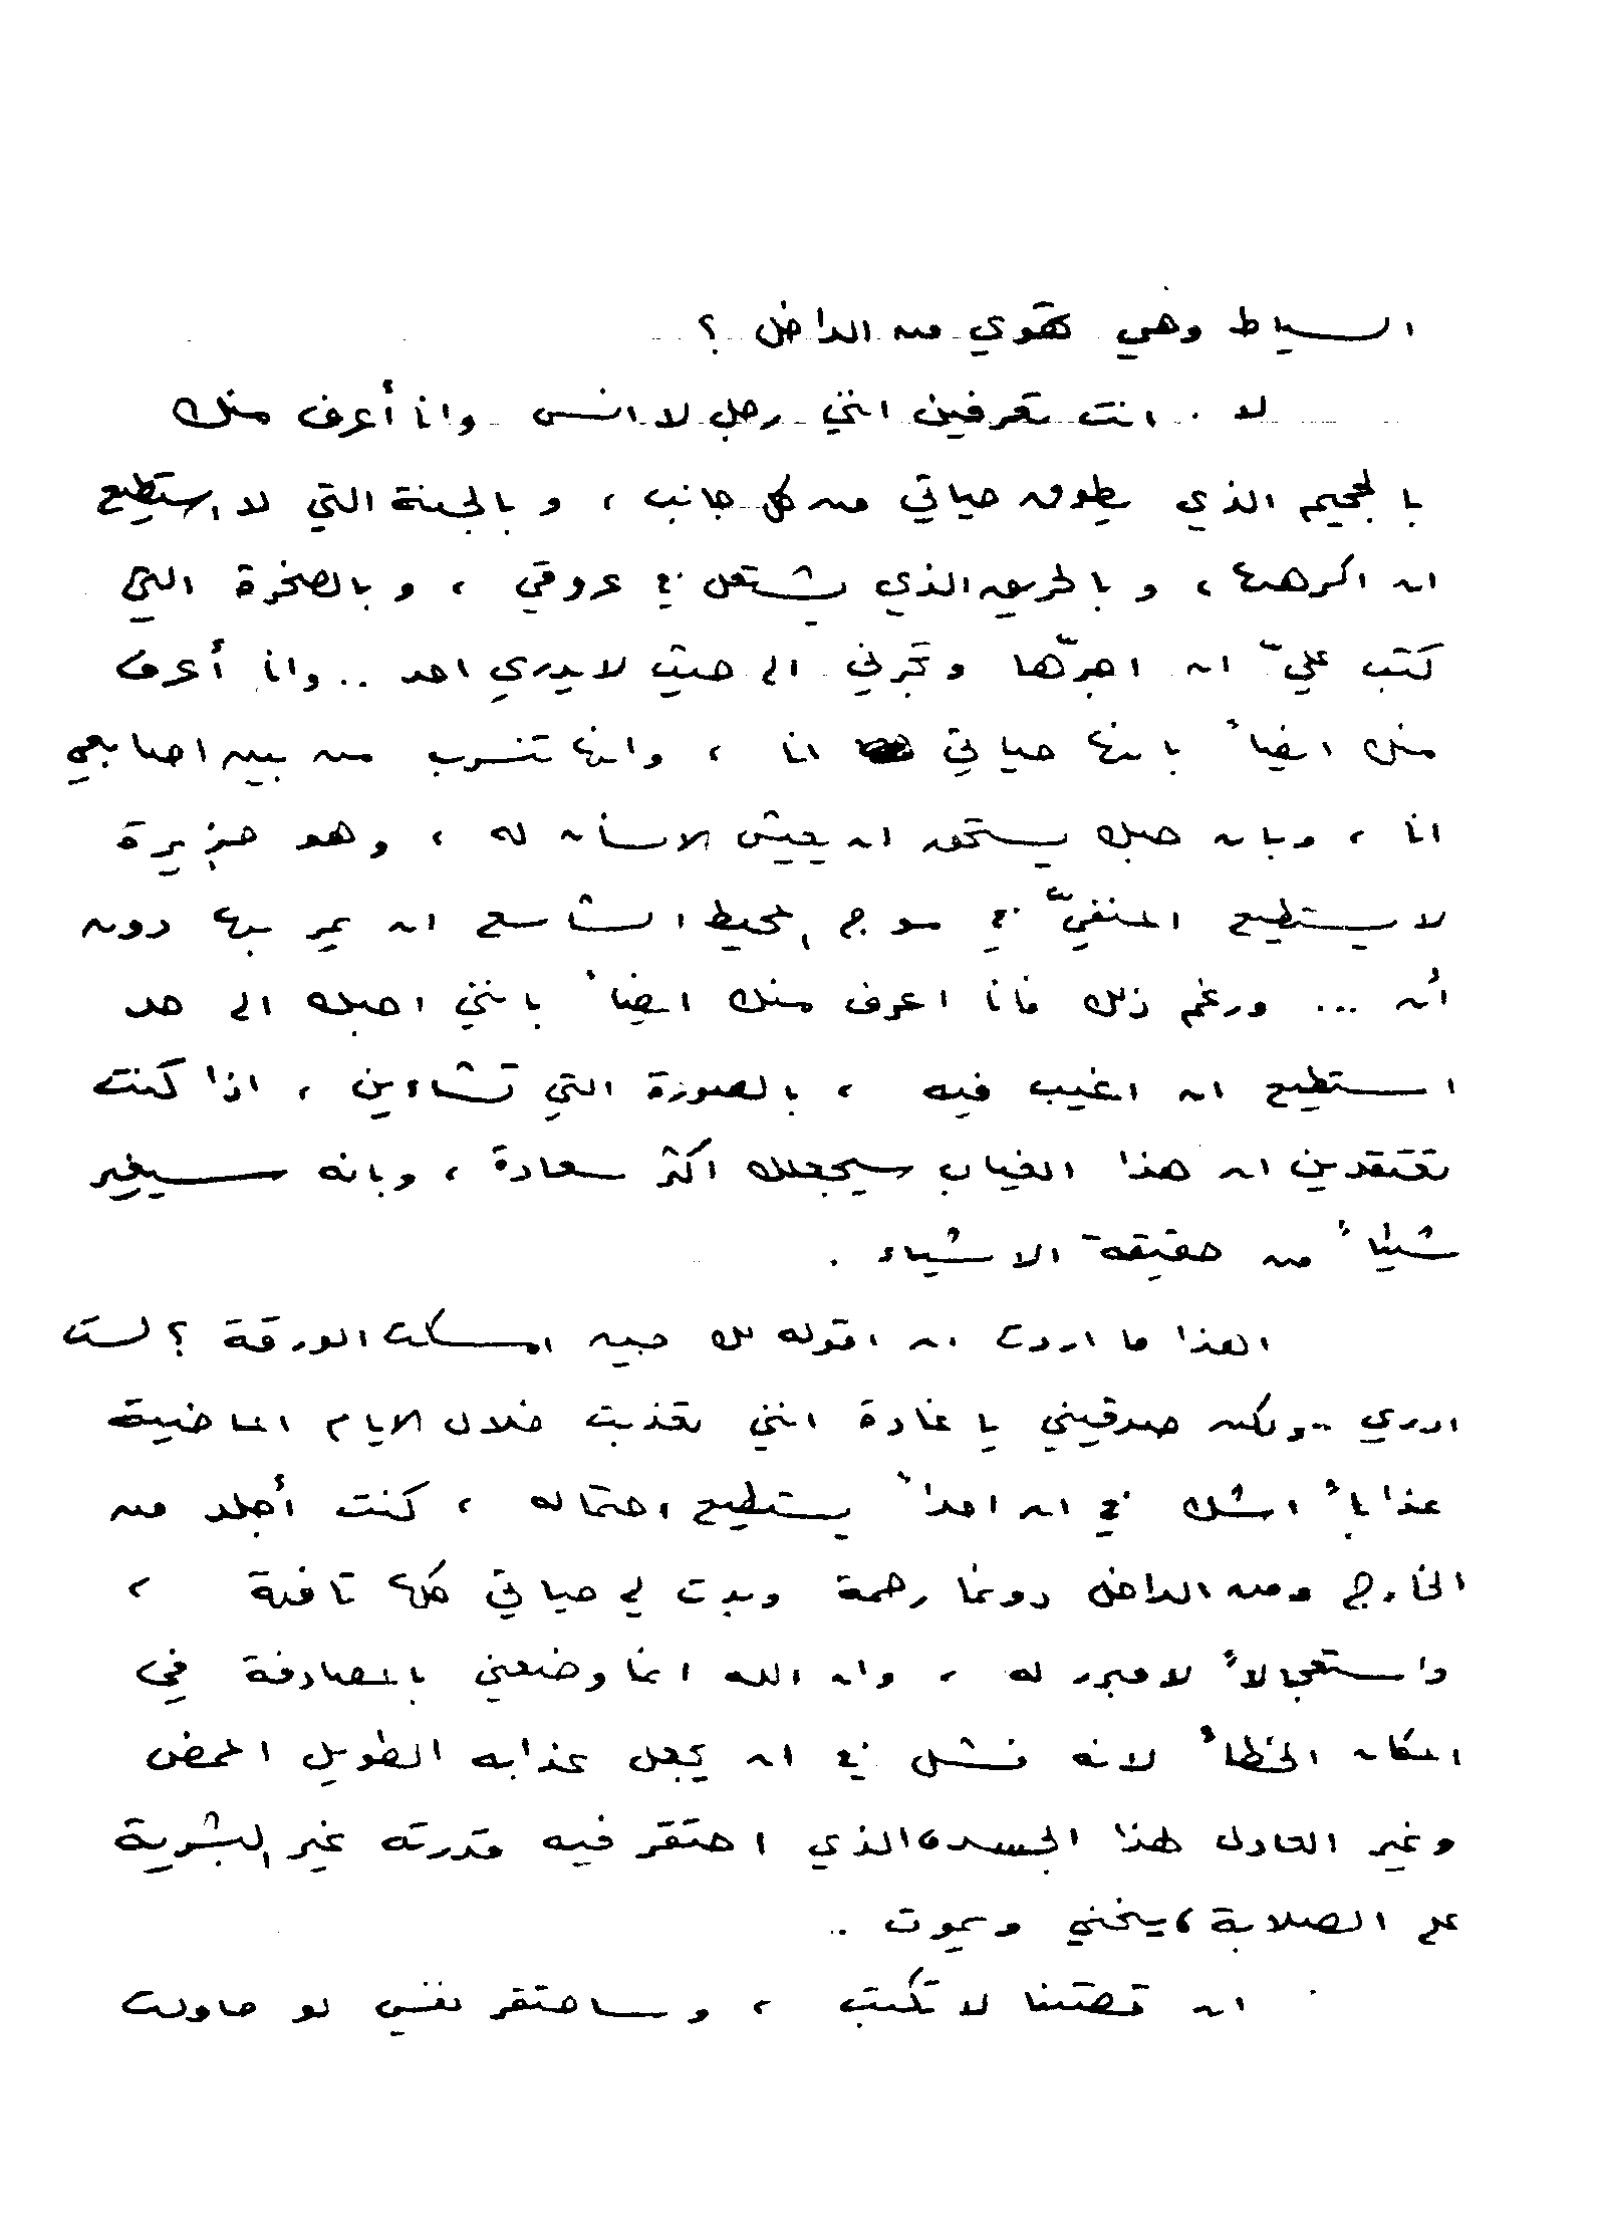 السياط وهي تهوي من الداخل ؟
لا . انت تعرفين انني رجل لا انسى وانا أعرف منك
بالجحيم الذي يطوق حياتي من كل جانب ، وبالجنة التي لا استطيع
ان اكرهها ، وبالحريق الذي يشتعل في عروقي ، وبالصخرة التي
كتب عليّ ان اجرّها وتجرني الى حيث لا يدري احد .. وانا أعرف
منك ايضاً بانها حياتي انا ، وانها تتسرب من بين اصابعي
انا ، وبان حبك يستحق ان يعيش الانسان له ، وهو جزيرة
لا يستطيع المنفيّ في موج المحيط الشاسع ان يمر بها دون
أن ... ورغم ذلك فانا اعرف منك ايضاً بانني احبك الى حد
استطيع ان اغيب فيه ، بالصورة التي تشاءين ، اذا كنت
تعتقدين ان هذا الغياب سيجعلك اكثر سعادة ، وبانه سيغير
شيئاً من حقيقة الاشياء .
اهذا ما اردت ان اقوله لك حين امسكت الورقة ؟ لست
ادري .. ولكن صدقيني يا غادة انني تعذبت خلال الايام الماضية
عذاباً اشك في ان احداً يستطيع احتماله ، كنت أجلد من
الخارج ومن الداخل دونما رحمة وبدت لي حياتي كلها تافهة ،
واستعجالاً لا مبرر له ، وان الله انما وضعني بالمصادفة في
المكان الخطأ لانه فشل في ان يجعل عذابه الطويل الممض
وغير العادل لهذا الجسد ، الذي احتقر فيه قدرته غير البشرية
على الصلابة ، ينحني ويموت ..
ان قصتنا لا تكتب ، وساحتقر نفسي لو حاولت